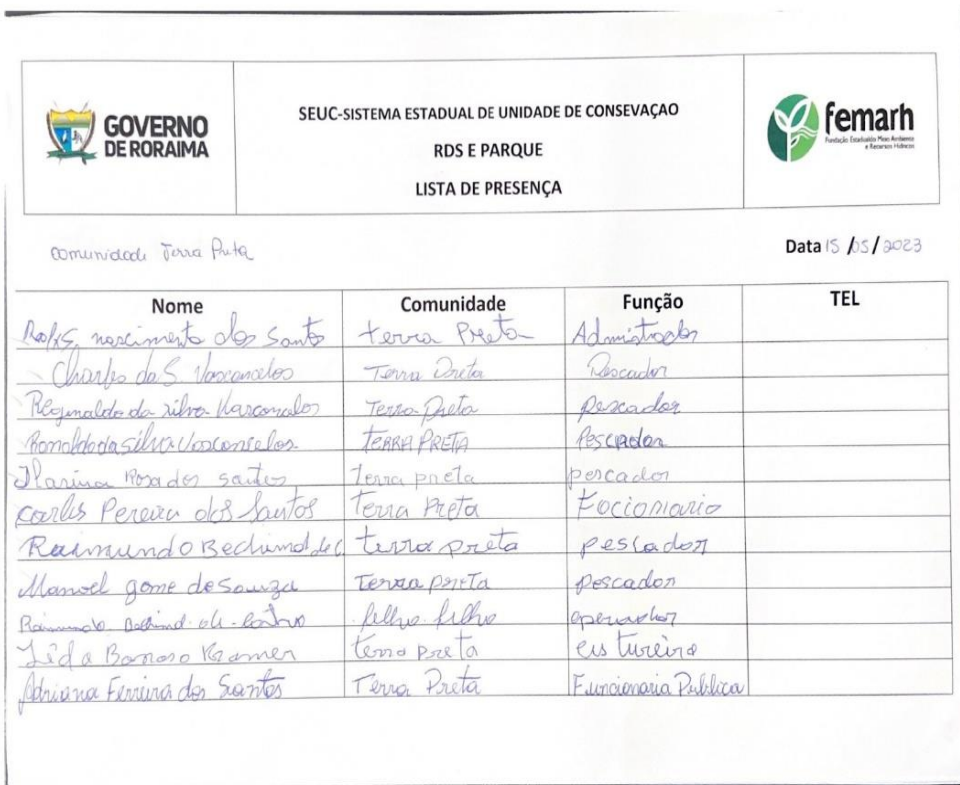 GOVERNO
DE RORAIMA
SEUC-SISTEMA ESTADUAL DE UNIDADE DE CONSEVAÇAO
RDS E PARQUE
LISTA DE PRESENÇA
femarh
Fundação Estadual do Meio Ambiente
e Recursos Hídricos
comunidade Terra Preta
Data 15/05/2023
Nome Comunidade Função TEL
nascimento dos Santo terra Preta
Charles da S. Vasconcelos Terra Preta Pescador
Reginaldo da Silva Vasconcelos Terra Preta pescador
Ronaldo da Silva Vasconcelos TERRA PRETA Pescador
Rosa dos santos terra preta pescador
Carlos Pereira dos Santos Terra Preta Focionario
Raimundo Bechimol de C. terra preta pescador
Manoel gome de Souza Terra preta Pescador
Raimundo de Castro filho filho operador
Barroso Kramer terra preta
Adriana Ferreira dos Santos Terra Preta Funcionaria Publica